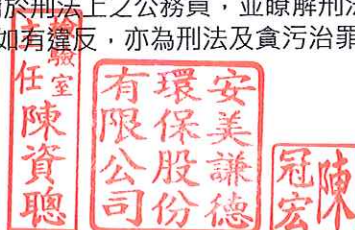 於刑法上之公務員，並瞭解刑法
如有違反，亦為刑法及貪污治罪
檢驗室
主任陳資聰
安美謙德
環保股份
有限公司
陳冠宏